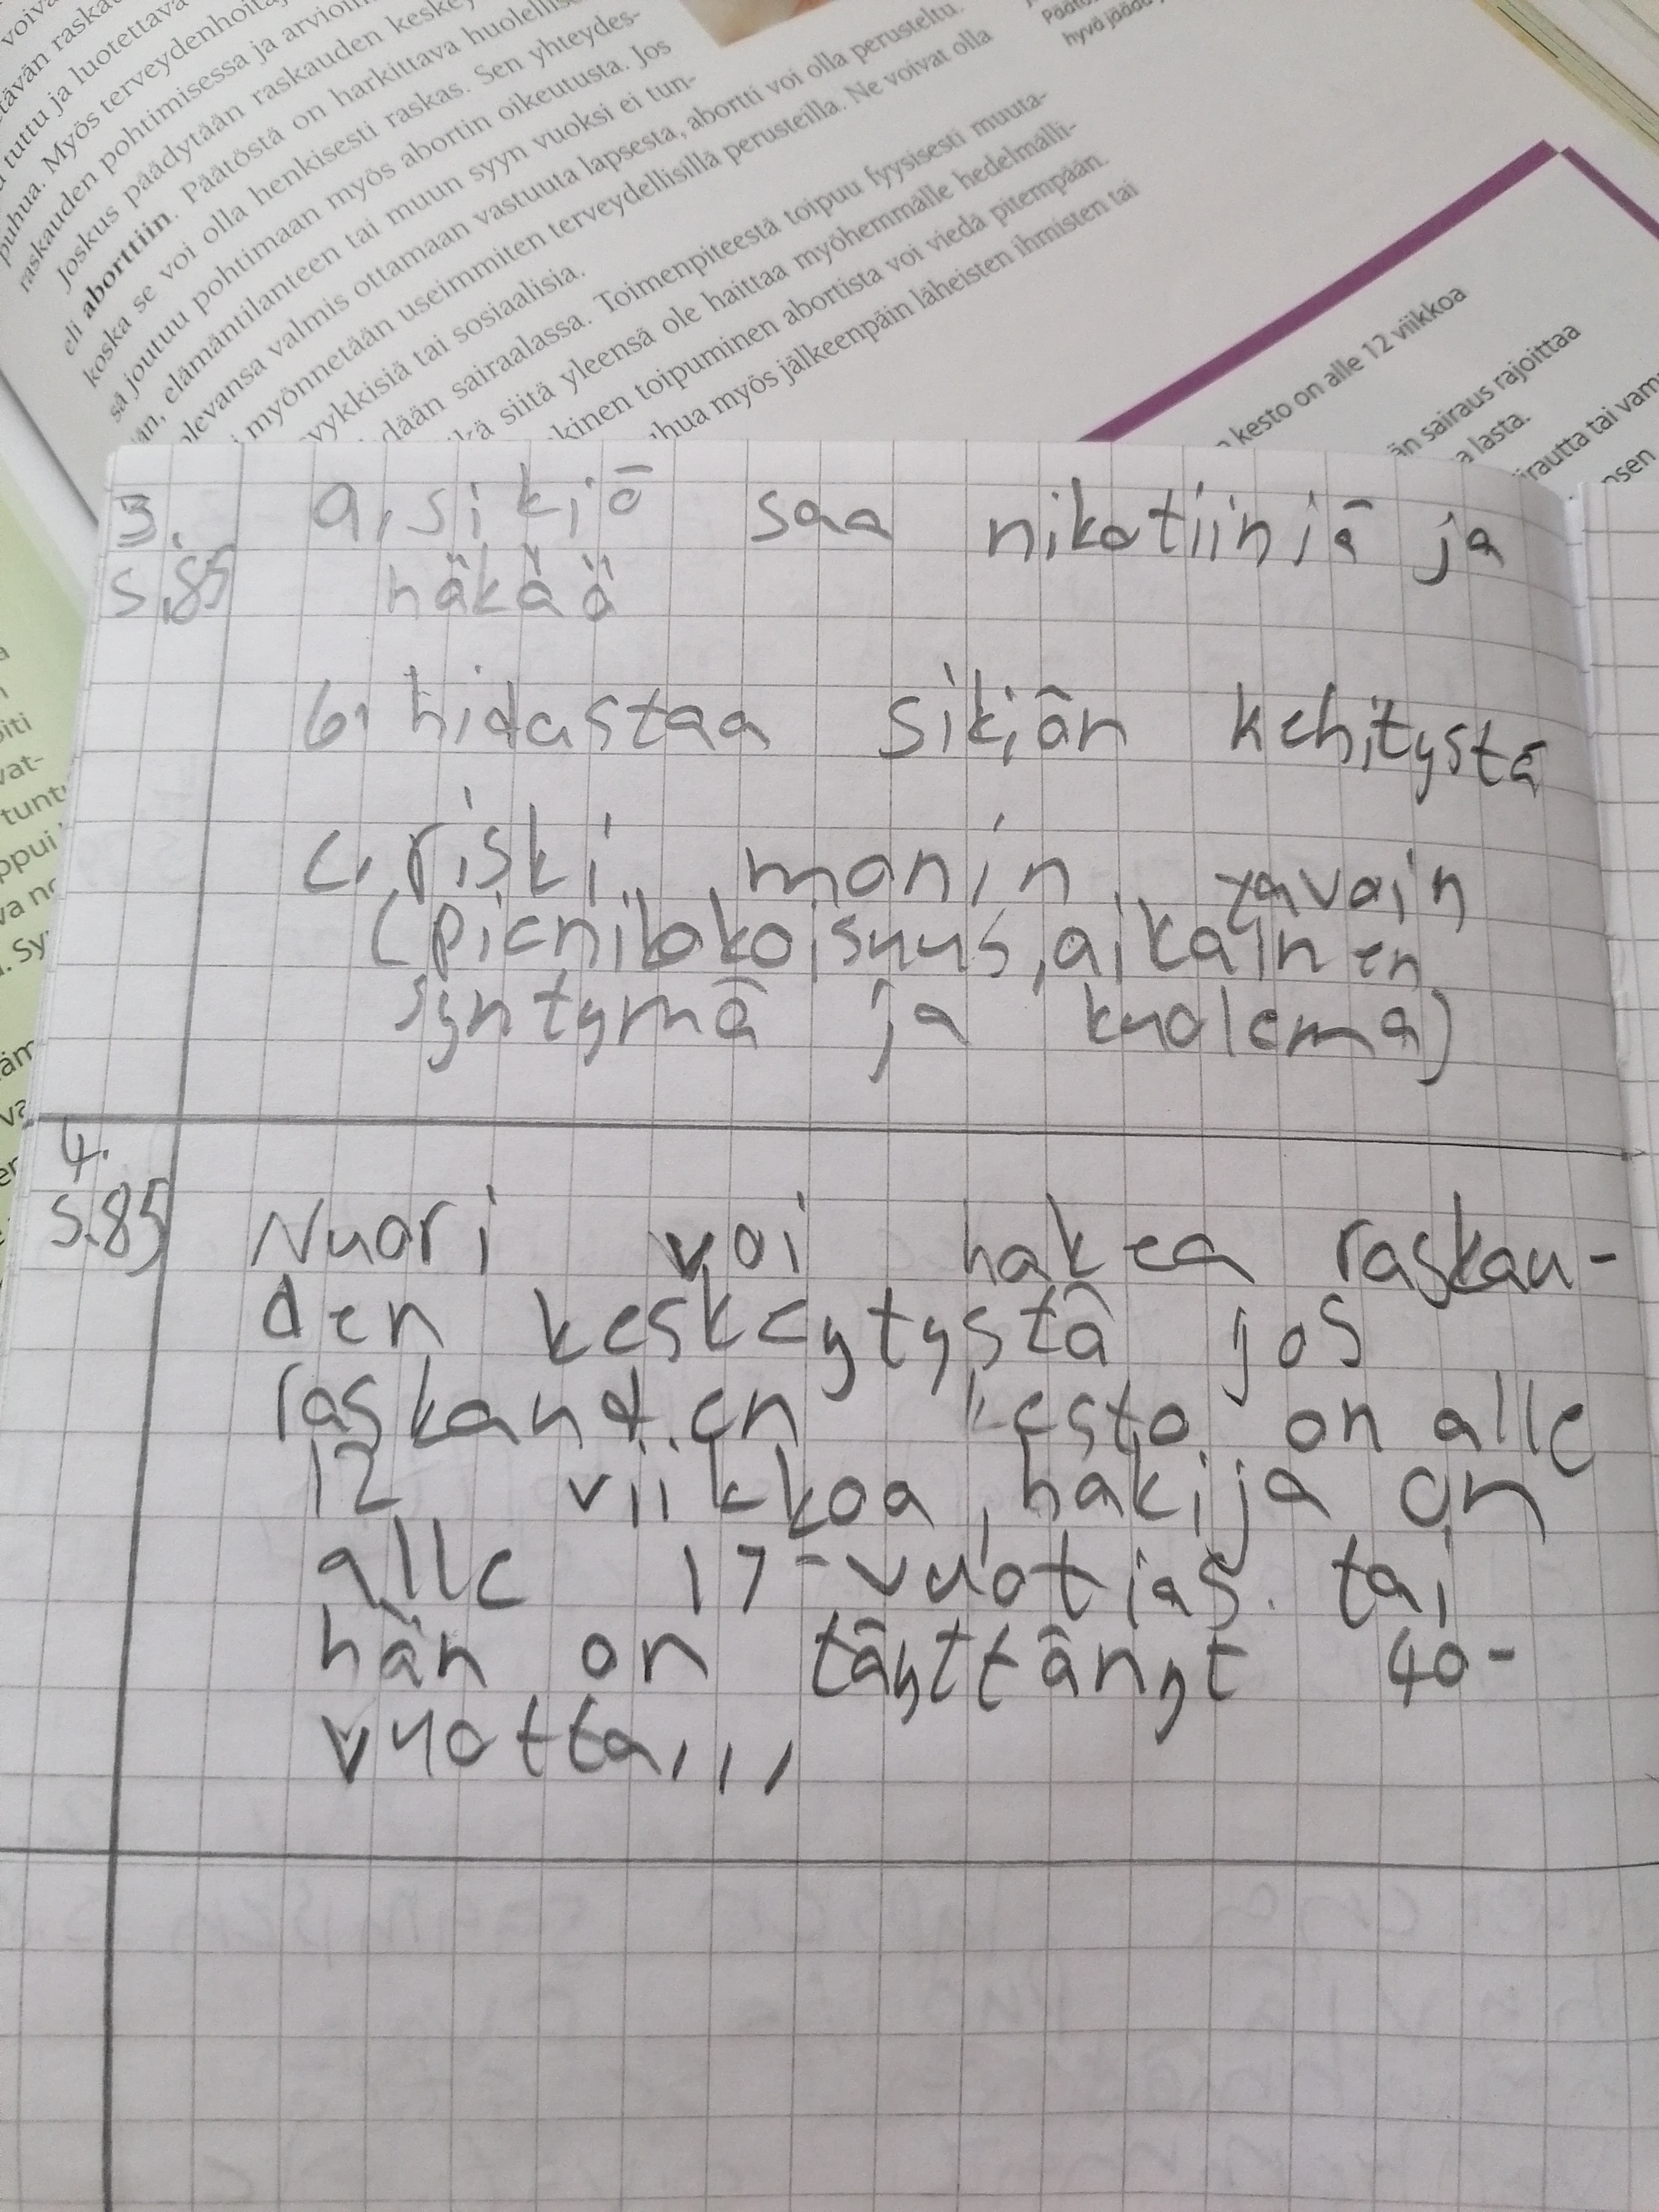 tävän raskau
tuttu ja luotettava
puhua. Myös terveydenhoitaj
raskauden pohtimisessa ja arvioin
Joskus päädytään raskauden keskey
eli aborttiin. Päätöstä on harkittava huolellise
koska se voi olla henkisesti raskas. Sen yhteydes-
sä joutuu pohtimaan myös abortin oikeutusta. Jos
än, elämäntilanteen tai muun syyn vuoksi ei tun-
olevansa valmis ottamaan vastuuta lapsesta, abortti voi olla perusteltu.
i myönnetään useimmiten terveydellisillä perusteilla. Ne voivat olla
vykkisiä tai sosiaalisia.
dään sairaalassa. Toimenpiteestä toipuu fyysisesti muuta-
kä siitä yleensä ole haittaa myöhemmälle hedelmälli-
kinen toipuminen abortista voi viedä pitempään.
uhua myös jälkeenpäin läheisten ihmisten tai
hyvä jääda
n kesto on alle 12 viikkoa
än sairaus rajoittaa
a lasta.
irautta tai vam
nsen
3. a, sikiö saa nikotiiniä ja
s.85 häkää
b, hidastaa sikiän kehitystä
c, riski monin tavain
(pienikokoisuus, aikainen
syntymä ja kuolema)
4.
s.85 Nuori voi hakea raskau-
den keskeytystä jos
raskauden kesto on alle
12 viikkoa, hakija on
alle 17-vuotias tai
hän on täyttänyt 40-
vuotta,,,